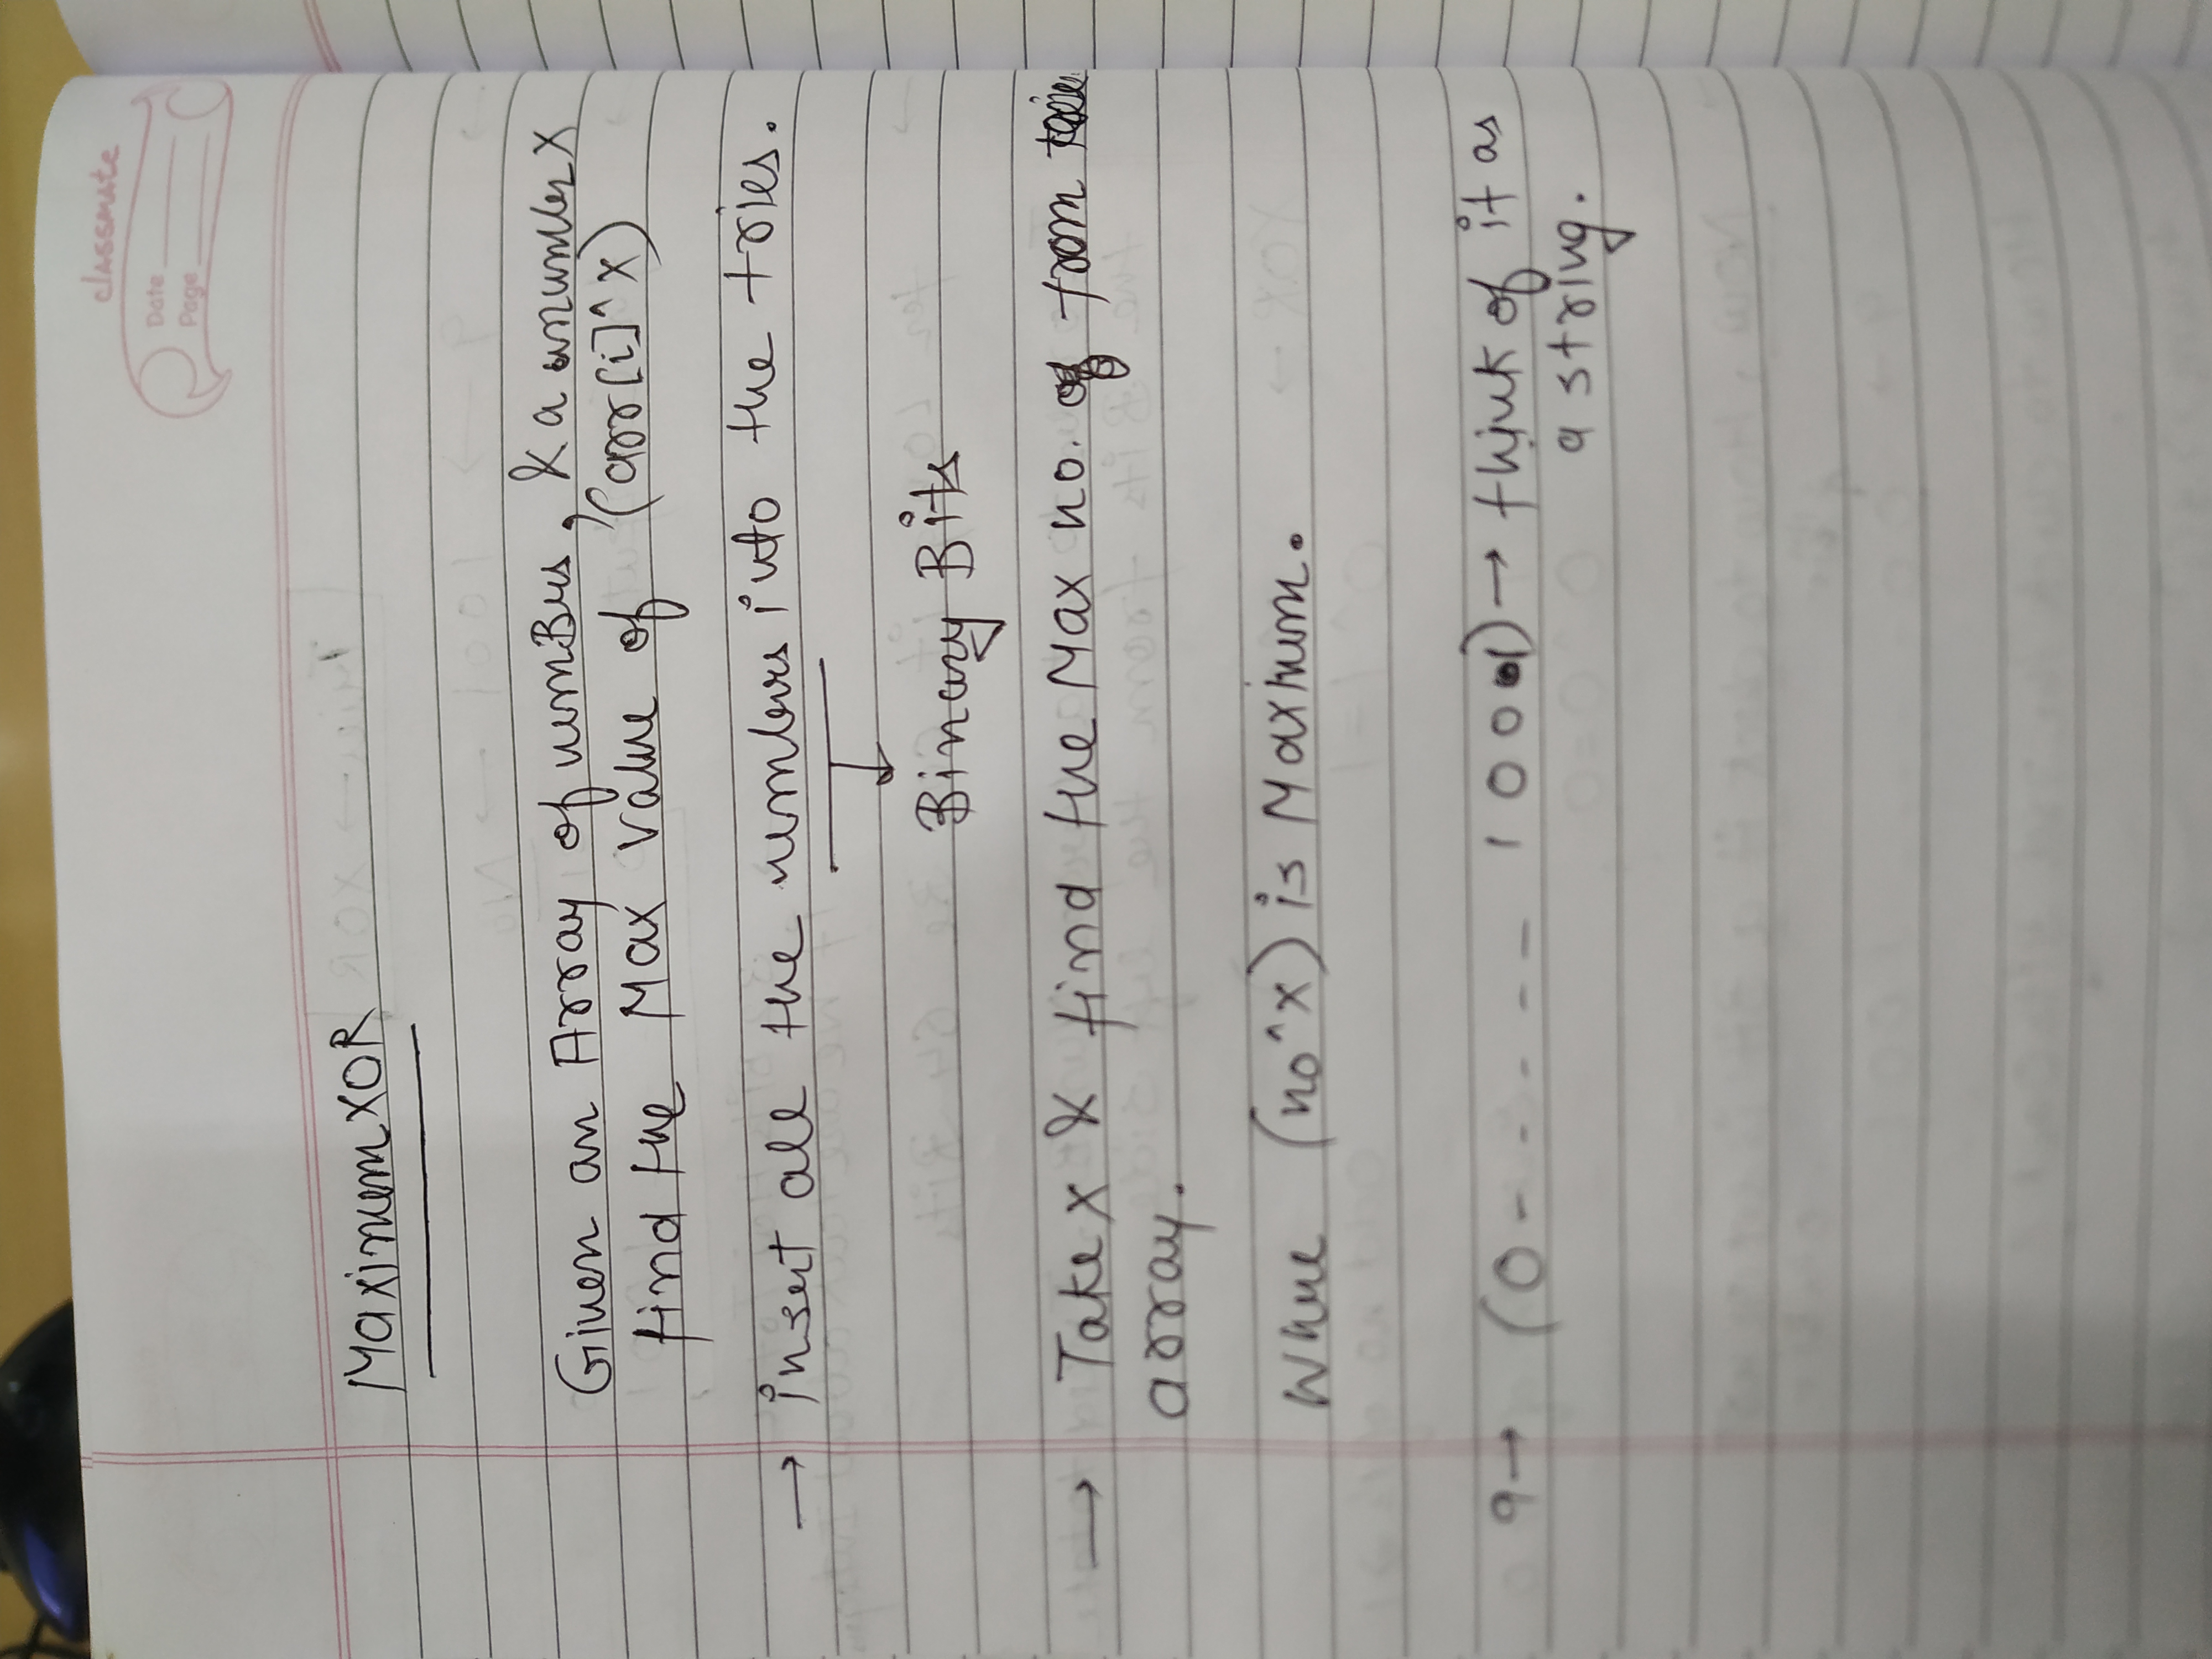 classmate
Date
Page
Maximum XOR
Given an Array of numBers, & a number X
find the Max Value of (arr[i]^X)
→ insert all the numbers into the tries.
Binary Bits
→ Take X & find the Max no. of from
array.
Where (no^X) is Maximum.
9→ (0- - - - - - 1001)→ think of it as
a string.